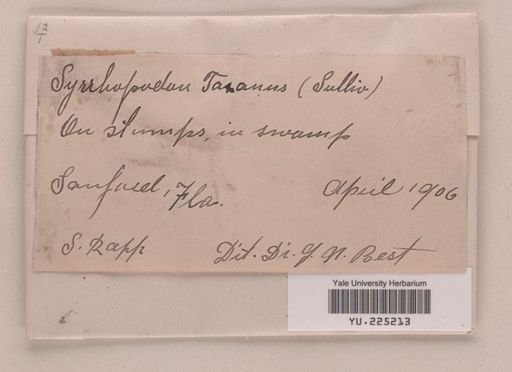 12
1
Syrrhopodon Texanus (Sulliv)
On stumps, in swamp
Sanford, Fla. April 1906
S. Rapp Dit. Dr. G. N. Best
Yale University Herbarium
YU.225213